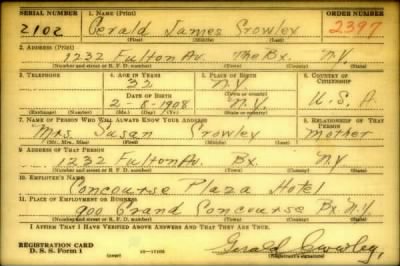 SERIAL NUMBER 1. NAME (Print) ORDER NUMBER
2102 Gerald James Crowley 2397
(First) (Middle) (Last)
2. ADDRESS (Print)
1232 Fulton Av. The Bx. N.Y.
(Number and street or R. F. D. number) (Town) (County) (State)
3. TELEPHONE 4. AGE IN YEARS 5. PLACE OF BIRTH 6. COUNTRY OF CITIZENSHIP
32 N.Y.
DATE OF BIRTH (Town or county)
2-8-1908 N.Y. U.S.A
(Exchange) (No.) (Mo.) (Day) (Yr.) (State or country)
7. NAME OF PERSON WHO WILL ALWAYS KNOW YOUR ADDRESS 8. RELATIONSHIP OF THAT PERSON
Mrs. Susan Crowley Mother
(Mr., Mrs., Miss) (First) (Middle) (Last)
9. ADDRESS OF THAT PERSON
1232 Fulton Av. Bx. N.Y
(Number and street or R. F. D. number) (Town) (County) (State)
10. EMPLOYER'S NAME
Concourse Plaza Hotel
11. PLACE OF EMPLOYMENT OR BUSINESS
900 Grand Concourse Bx. N.Y.
(Number and street or R. F. D. number) (Town) (County) (State)
I AFFIRM THAT I HAVE VERIFIED ABOVE ANSWERS AND THAT THEY ARE TRUE.
REGISTRATION CARD
D. S. S. Form 1 (over) Gerald Crowley
(Registrant's signature)